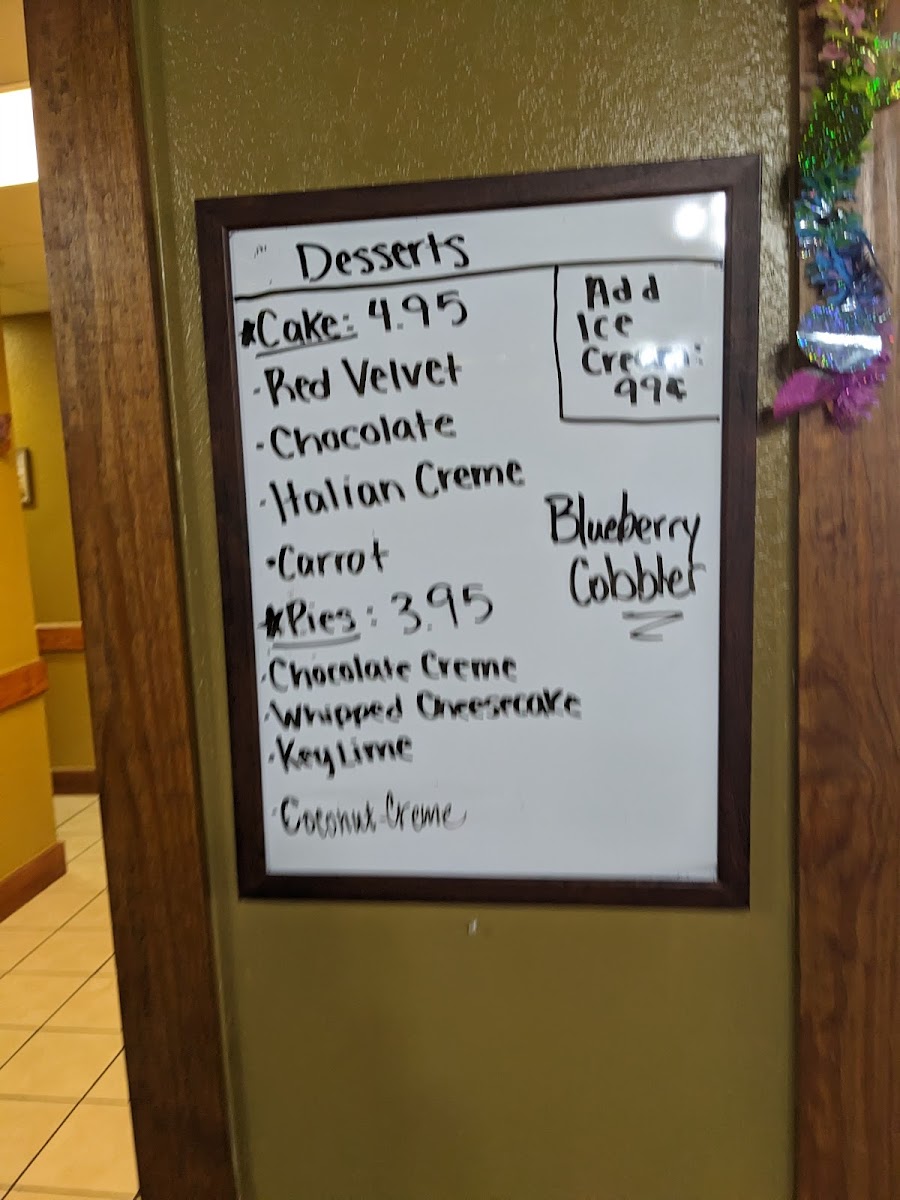 Desserts
*Cake: 4.95
·Red Velvet
·Chocolate
·Italian Creme
·Carrot
*Pies: 3.95
·Chocolate Creme
·Whipped Cheesecake
·Key Lime
·Coconut Creme
Add
Ice
Cream:
99¢
Blueberry
Cobbler